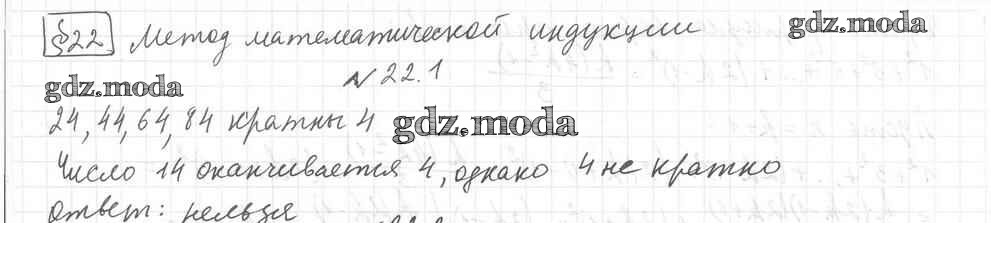 §22 Метод математической индукции
gdz.moda
gdz.moda
№ 22.1
24, 44, 64, 84 кратны 4
gdz.moda
Число 14 оканчивается 4, однако 4 не кратно
Ответ: нельзя